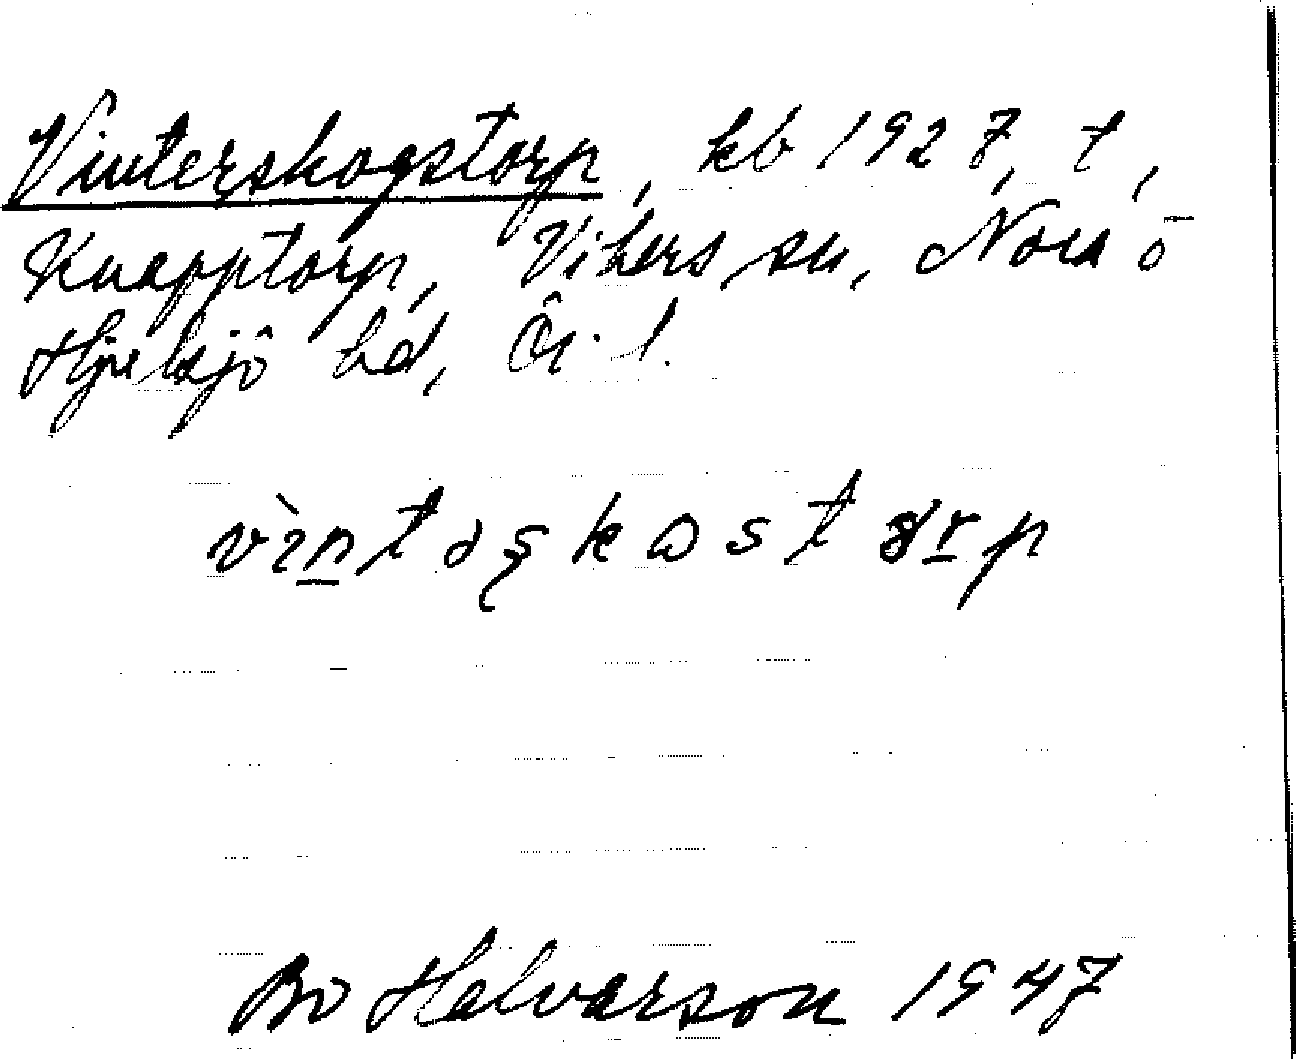 Vinterskogstorp, kb 1927, t,
Knapptorp, Vikers sn, Nora o
Hjulsjö hd, Ör. l.
vìntəşkωst
Bo Halvarson 1947